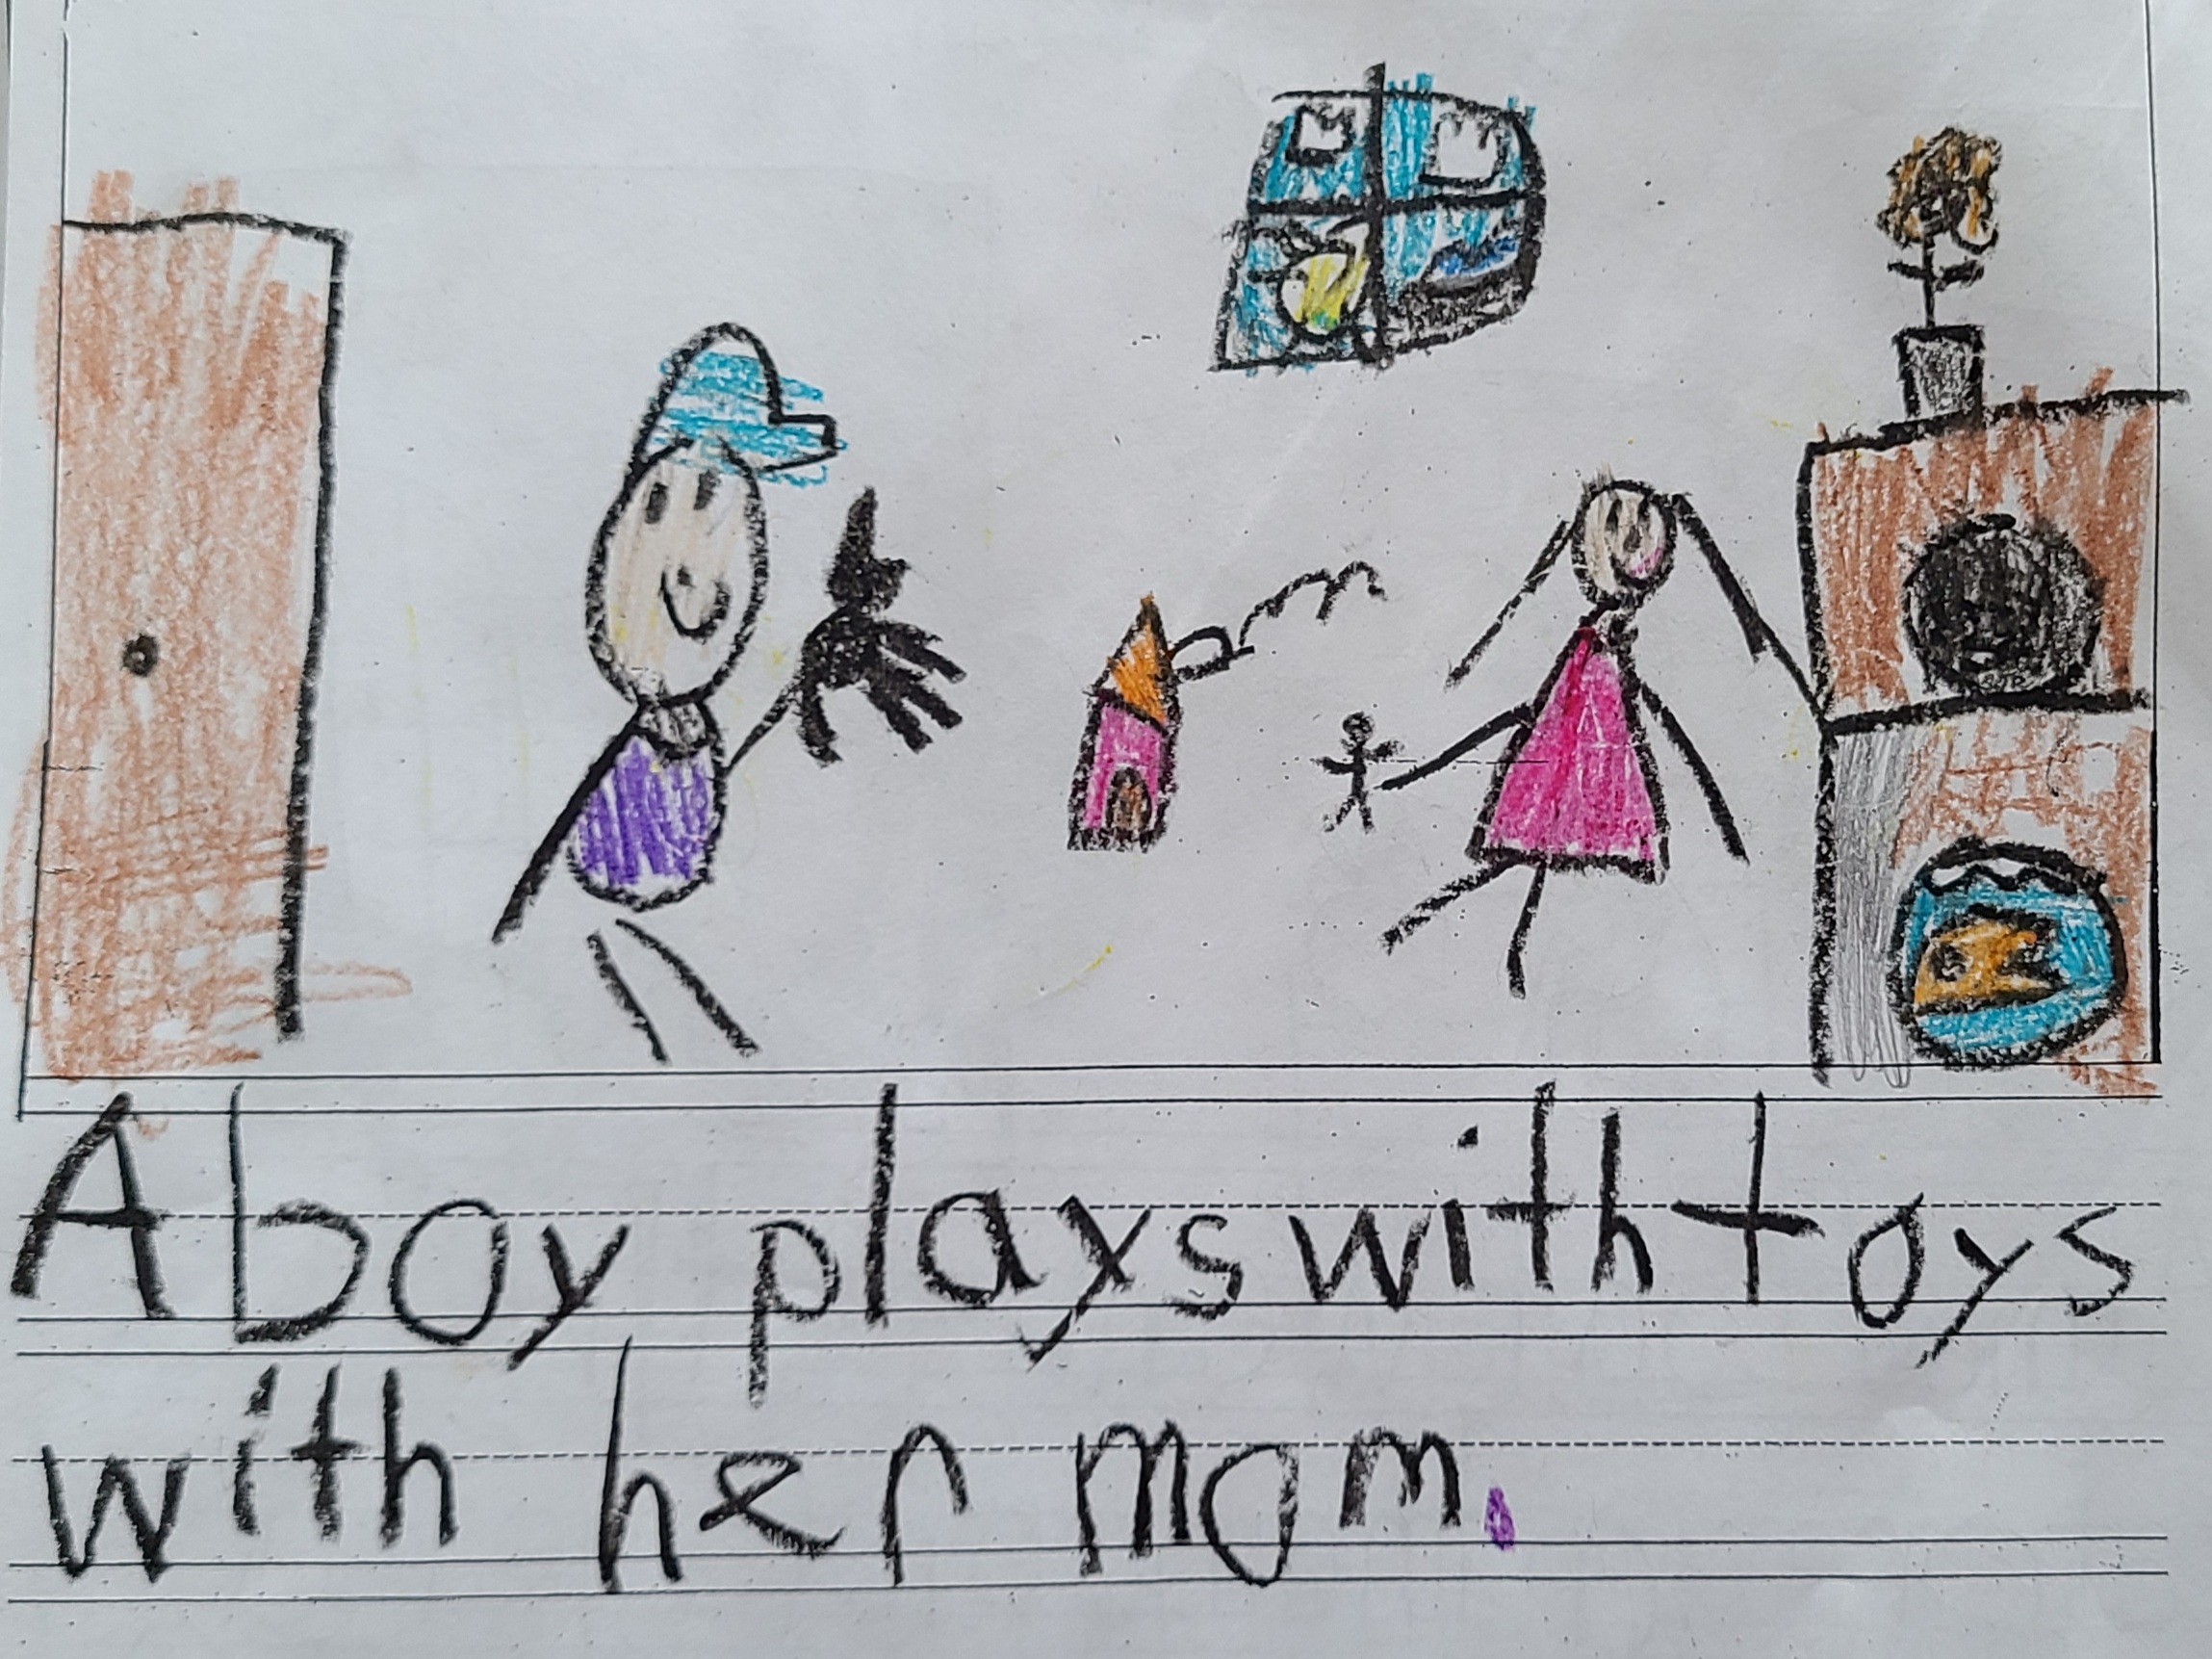 A boy plays with toys
with her mom.